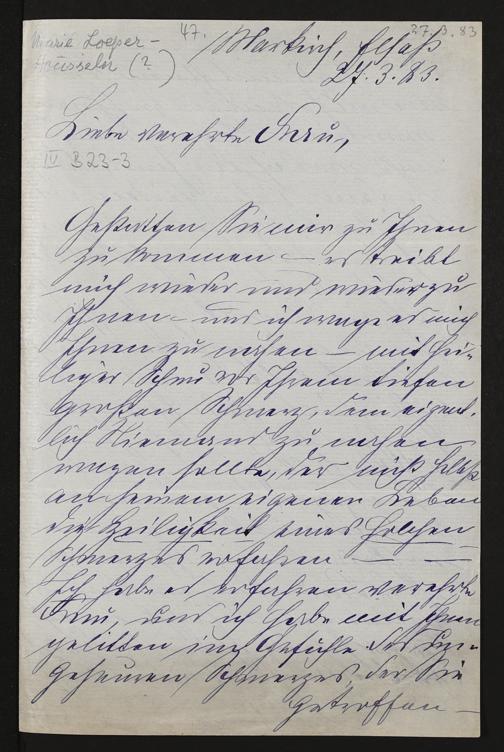 Marie Loeper-
Housselle (?)
47.
27.3.83
Markirch, Elsaß
27.3.83.
Liebe verehrte Frau,
IV B23-3
Gestatten Sie mir zu Ihnen
zu kommen — es treibt
mich wieder und wieder zu
Ihnen – und ich wage es mich
Ihnen zu nahen — mit hei-
liger Scheu vor Ihrem tiefen
großen Schmerz, dem eigent-
lich Niemand zu nahen
wagen sollte, der nicht selbst
an seinem eigenen Leben
die Heiligkeit eines solchen
Schmerzes erfahren — —
Ich habe es erfahren verehrte
Frau, und ich habe mit Ihnen
gelitten im Gefühle des un-
geheuren Schmerzes, der Sie
getroffen —